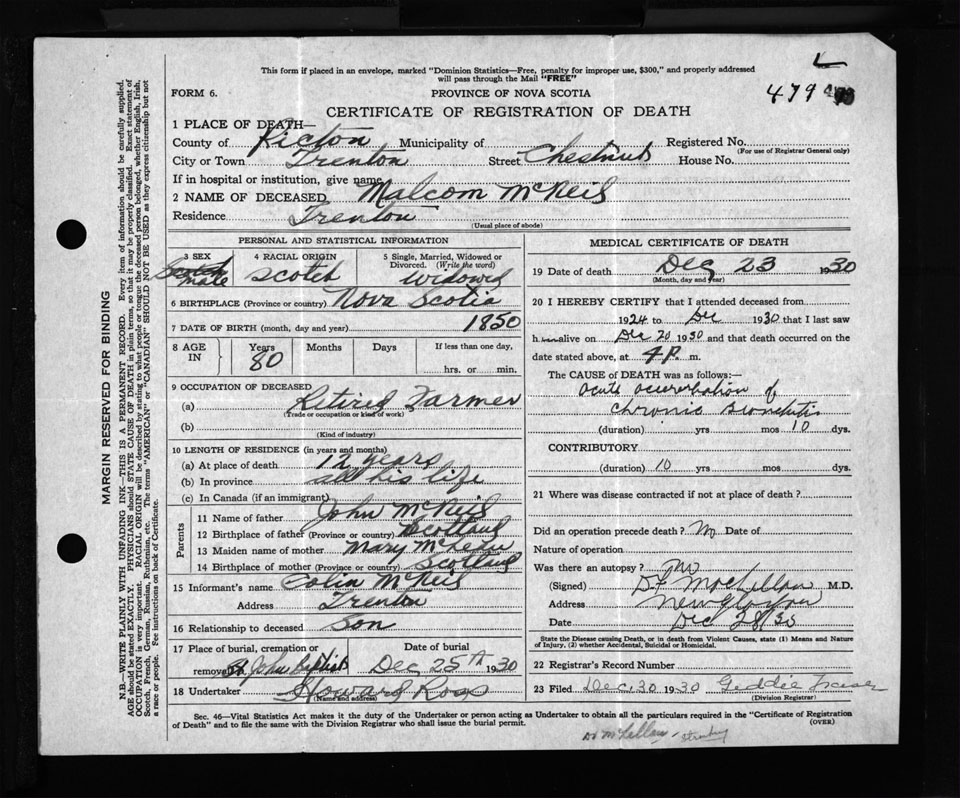 This form if placed in an envelope, marked "Dominion Statistics—Free, penalty for improper use, $300," and properly addressed
will pass through the Mail "FREE"
FORM 6.
PROVINCE OF NOVA SCOTIA
479
CERTIFICATE OF REGISTRATION OF DEATH
1 PLACE OF DEATH—
County of Pictou Municipality of Registered No.
(For use of Registrar General only)
City or Town Trenton Street Chestnut House No.
If in hospital or institution, give name
2 NAME OF DECEASED Malcom McNeil
Residence Trenton
(Usual place of abode)
PERSONAL AND STATISTICAL INFORMATION
3 SEX 4 RACIAL ORIGIN 5 Single, Married, Widowed or
Divorced. (Write the word)
male Scotch Widowed
6 BIRTHPLACE (Province or country) Nova Scotia
7 DATE OF BIRTH (month, day and year) 1850
8 AGE IN Years Months Days If less than one day,
80 hrs. or min.
9 OCCUPATION OF DECEASED
(a) Retired Farmer
(Trade or occupation or kind of work)
(b)
(Kind of industry)
10 LENGTH OF RESIDENCE (in years and months)
(a) At place of death 12 years
(b) In province all his life
(c) In Canada (if an immigrant)
Parents
11 Name of father John McNeil
12 Birthplace of father (Province or country) Scotland
13 Maiden name of mother Mary
14 Birthplace of mother (Province or country) Scotland
15 Informant's name Colin McNeil
Address Trenton
16 Relationship to deceased Son
17 Place of burial, cremation or removal St John Baptist
Date of burial
Dec 25th 1930
18 Undertaker Howard Ross
(Name and address)
MEDICAL CERTIFICATE OF DEATH
19 Date of death Dec 23 1930
(Month, day and year)
20 I HEREBY CERTIFY that I attended deceased from
1924 to Dec 1930 that I last saw
h alive on Dec 20 1930 and that death occurred on the
date stated above, at 4 P. m.
The CAUSE of DEATH was as follows:—
acute of
chronic
(duration) yrs mos 10 dys.
CONTRIBUTORY
(duration) 10 yrs. mos. dys.
21 Where was disease contracted if not at place of death?
Did an operation precede death? No Date of
Nature of operation
Was there an autopsy? No
(Signed) MacLellan M.D.
Address New Glasgow
Date Dec 28/30
State the Disease causing Death, or in death from Violent Causes, state (1) Means and Nature
of Injury, (2) whether Accidental, Suicidal or Homicidal.
22 Registrar's Record Number
23 Filed Dec. 30 1930 Geddie Fraser
(Division Registrar)
Sec. 46—Vital Statistics Act makes it the duty of the Undertaker or person acting as Undertaker to obtain all the particulars required in the "Certificate of Registration
of Death" and to file the same with the Division Registrar who shall issue the burial permit.
(OVER)
Dr McLellan
MARGIN RESERVED FOR BINDING
N.B.—WRITE PLAINLY WITH UNFADING INK—THIS IS A PERMANENT RECORD. Every item of information should be carefully supplied.
AGE should be stated EXACTLY. PHYSICIANS should STATE CAUSE OF DEATH in plain terms, so that it may be properly classified. Exact statement of
OCCUPATION is very important. RACIAL ORIGIN will be described by stating to what people or tongue the deceased person belonged, whether English, Irish,
Scotch, French, German, Russian, Ruthenian, etc. The terms "AMERICAN" or "CANADIAN" SHOULD NOT BE USED as they express citizenship but not
a race or people. Fee instructions on back of Certificate.